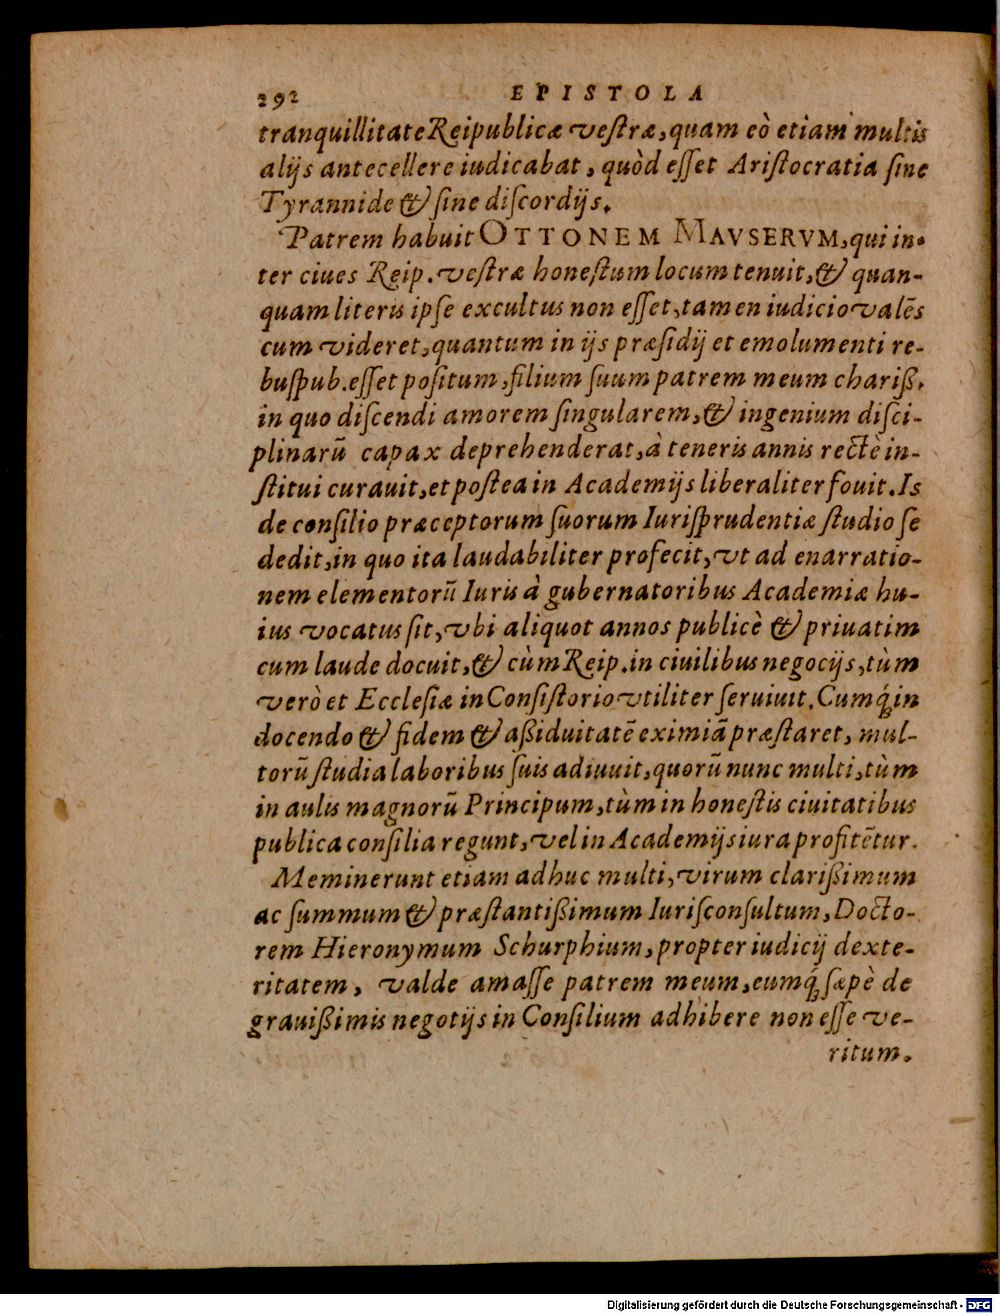 292 EPISTOLA
tranquillitate Reipublicæ veſtræ, quam eò etiam multis
alijs antecellere iudicabat, quòd eſſet Ariſtocratia ſine
Tyrannide & ſine diſcordijs.
Patrem habuit OTTONEM MAVSERVM, qui in-
ter ciues Reip. veſtræ honeſtum locum tenuit, & quan-
quam literis ipſe excultus non eſſet, tamen iudicio valẽs
cum videret, quantum in ijs præſidij et emolumenti re-
buſpub. eſſet poſitum, filium ſuum patrem meum chariß.
in quo diſcendi amorem ſingularem, & ingenium diſci-
plinarũ capax deprehenderat, à teneris annis rectè in-
ſtitui curauit, et poſtea in Academijs liberaliter fouit. Is
de conſilio præceptorum ſuorum Iuriſprudentiæ ſtudio ſe
dedit, in quo ita laudabiliter profecit, vt ad enarratio-
nem elementorũ Iuris à gubernatoribus Academiæ hu-
ius vocatus ſit, vbi aliquot annos publicè & priuatim
cum laude docuit, & cùm Reip. in ciuilibus negocijs, tùm
verò et Eccleſiæ in Conſiſtorio vtiliter ſeruiuit. Cumq́ꝫ in
docendo & fidem & aßiduitatẽ eximiã præſtaret, mul-
torũ ſtudia laboribus ſuis adiuuit, quorũ nunc multi, tùm
in aulis magnorũ Principum, tùm in honeſtis ciuitatibus
publica conſilia regunt, vel in Academijs iura profitẽtur.
Meminerunt etiam adhuc multi, virum clarißimum
ac ſummum & præſtantißimum Iuriſconſultum, Docto-
rem Hieronymum Schurphium, propter iudicij dexte-
ritatem, valde amaſſe patrem meum, eumq́ꝫ ſæpè de
grauißimis negotijs in Conſilium adhibere non eſſe ve-
ritum.
Digitalisierung gefördert durch die Deutsche Forschungsgemeinschaft - DFG